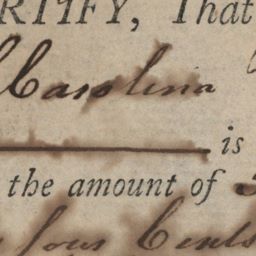 RTIFY, That
Carolina
is
the amount of
four Cents